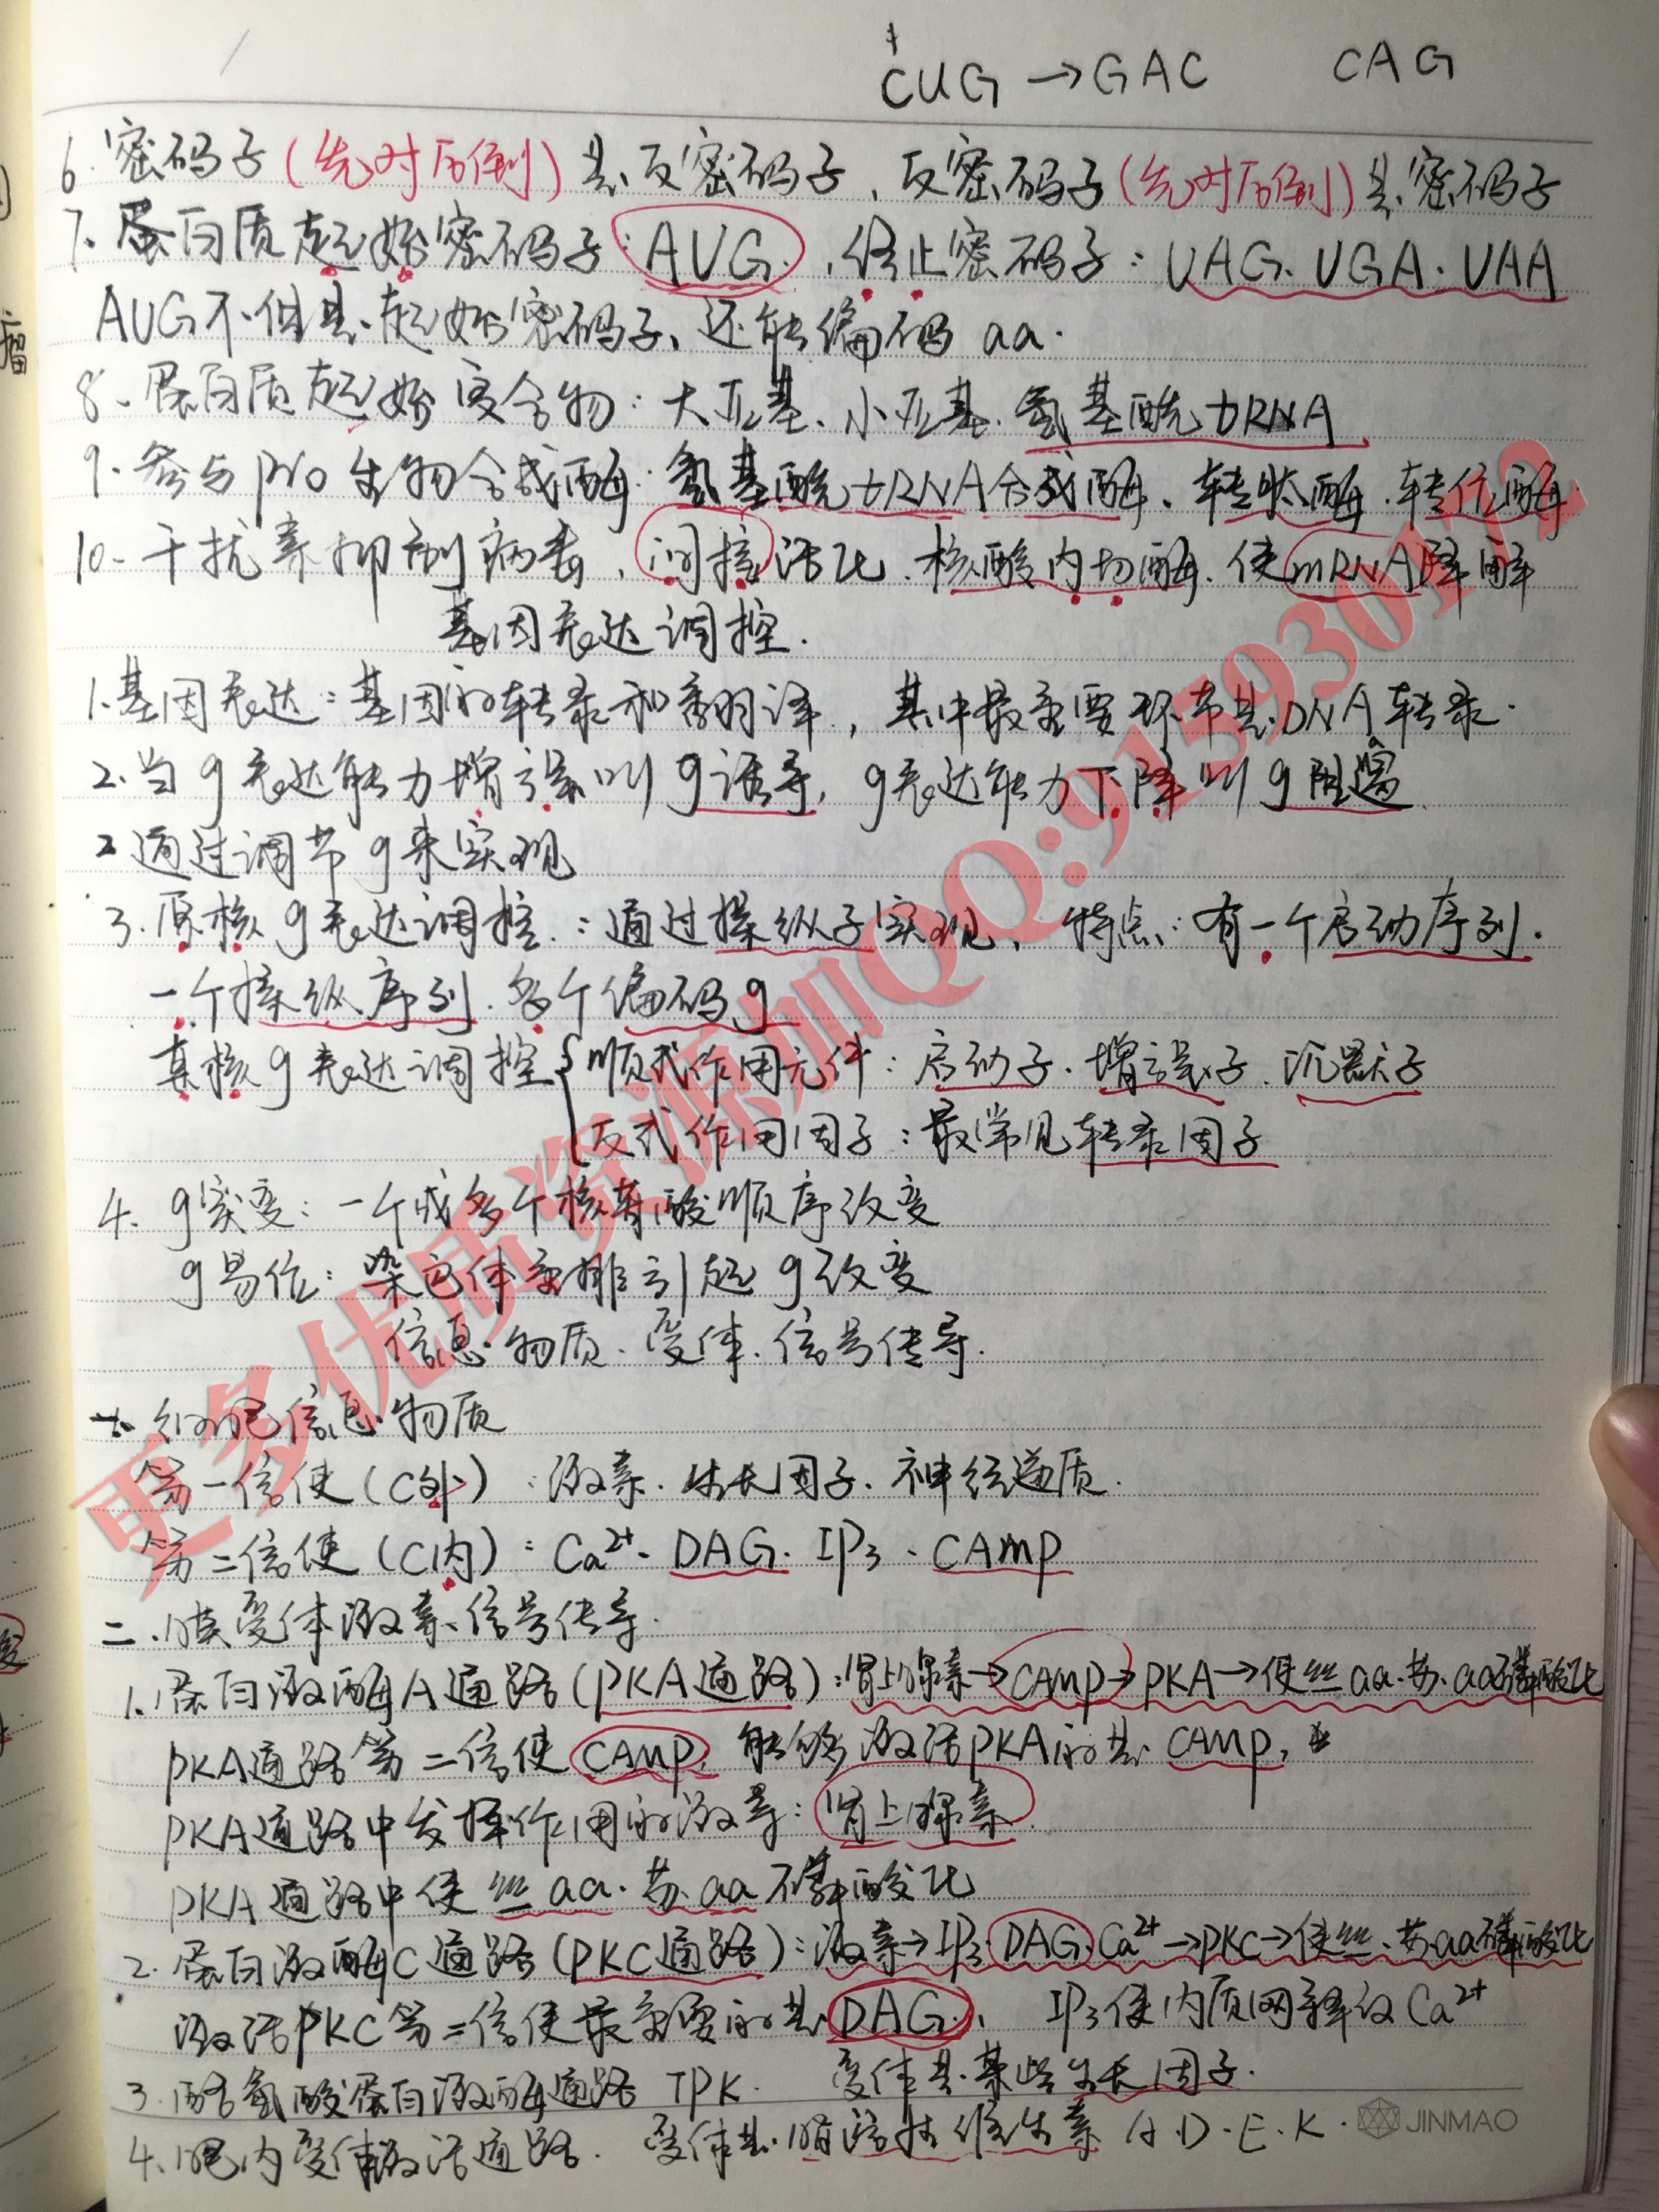 CUG→GAC CAG
6.密码子(先对后倒)是反密码子,反密码子(先对后倒)是密码子
7.蛋白质起始密码子:AUG.,终止密码子:UAG.UGA.UAA
AUG不但是起始密码子,还能编码aa.
8.蛋白质起始复合物:大亚基.小亚基.氨基酰tRNA
9.参与pro生物合成酶:氨基酰tRNA合成酶.转肽酶.转位酶
10.干扰素抑制病毒,间接活化.核酸内切酶.使mRNA降解
基因表达调控.
1.基因表达:基因的转录和翻译,其中最重要环节是DNA转录.
2.当g表达能力增强叫g诱导,g表达能力下降叫g阻遏
2通过调节g来实现
3.原核g表达调控:通过操纵子实现,特点:有一个启动序列.
一个操纵序列.多个编码g
真核g表达调控{顺式作用元件:启动子.增强子.沉默子
反式作用因子:最常见转录因子
4.g突变:一个或多个核苷酸顺序改变
g易位:染色体重排引起g改变
信息物质.受体.信号传导.
一.细胞信息物质
第一信使(C外):激素.生长因子.神经递质.
第二信使(C内):Ca²⁺.DAG.IP₃.CAMP
二.膜受体激素信号传导.
1.蛋白激酶A通路(PKA通路):肾上腺素→CAMP→PKA→使丝aa.苏.aa磷酸化
PKA通路第二信使CAMP,能够激活PKA的是CAMP,
PKA通路中发挥作用的激素:肾上腺素.
PKA通路中使丝aa.苏.aa磷酸化
2.蛋白激酶C通路(PKC通路):激素→IP₃.DAG.Ca²⁺→PKC→使丝、苏aa磷酸化
激活PKC第二信使最重要的是DAG, IP₃使内质网释放Ca²⁺
3.酪氨酸蛋白激酶通路TPK. 受体是某些生长因子.
4.胞内受体激活通路. 受体是脂溶性维生素A.D.E.K.
JINMAO
更多优质资源加QQ:915930172